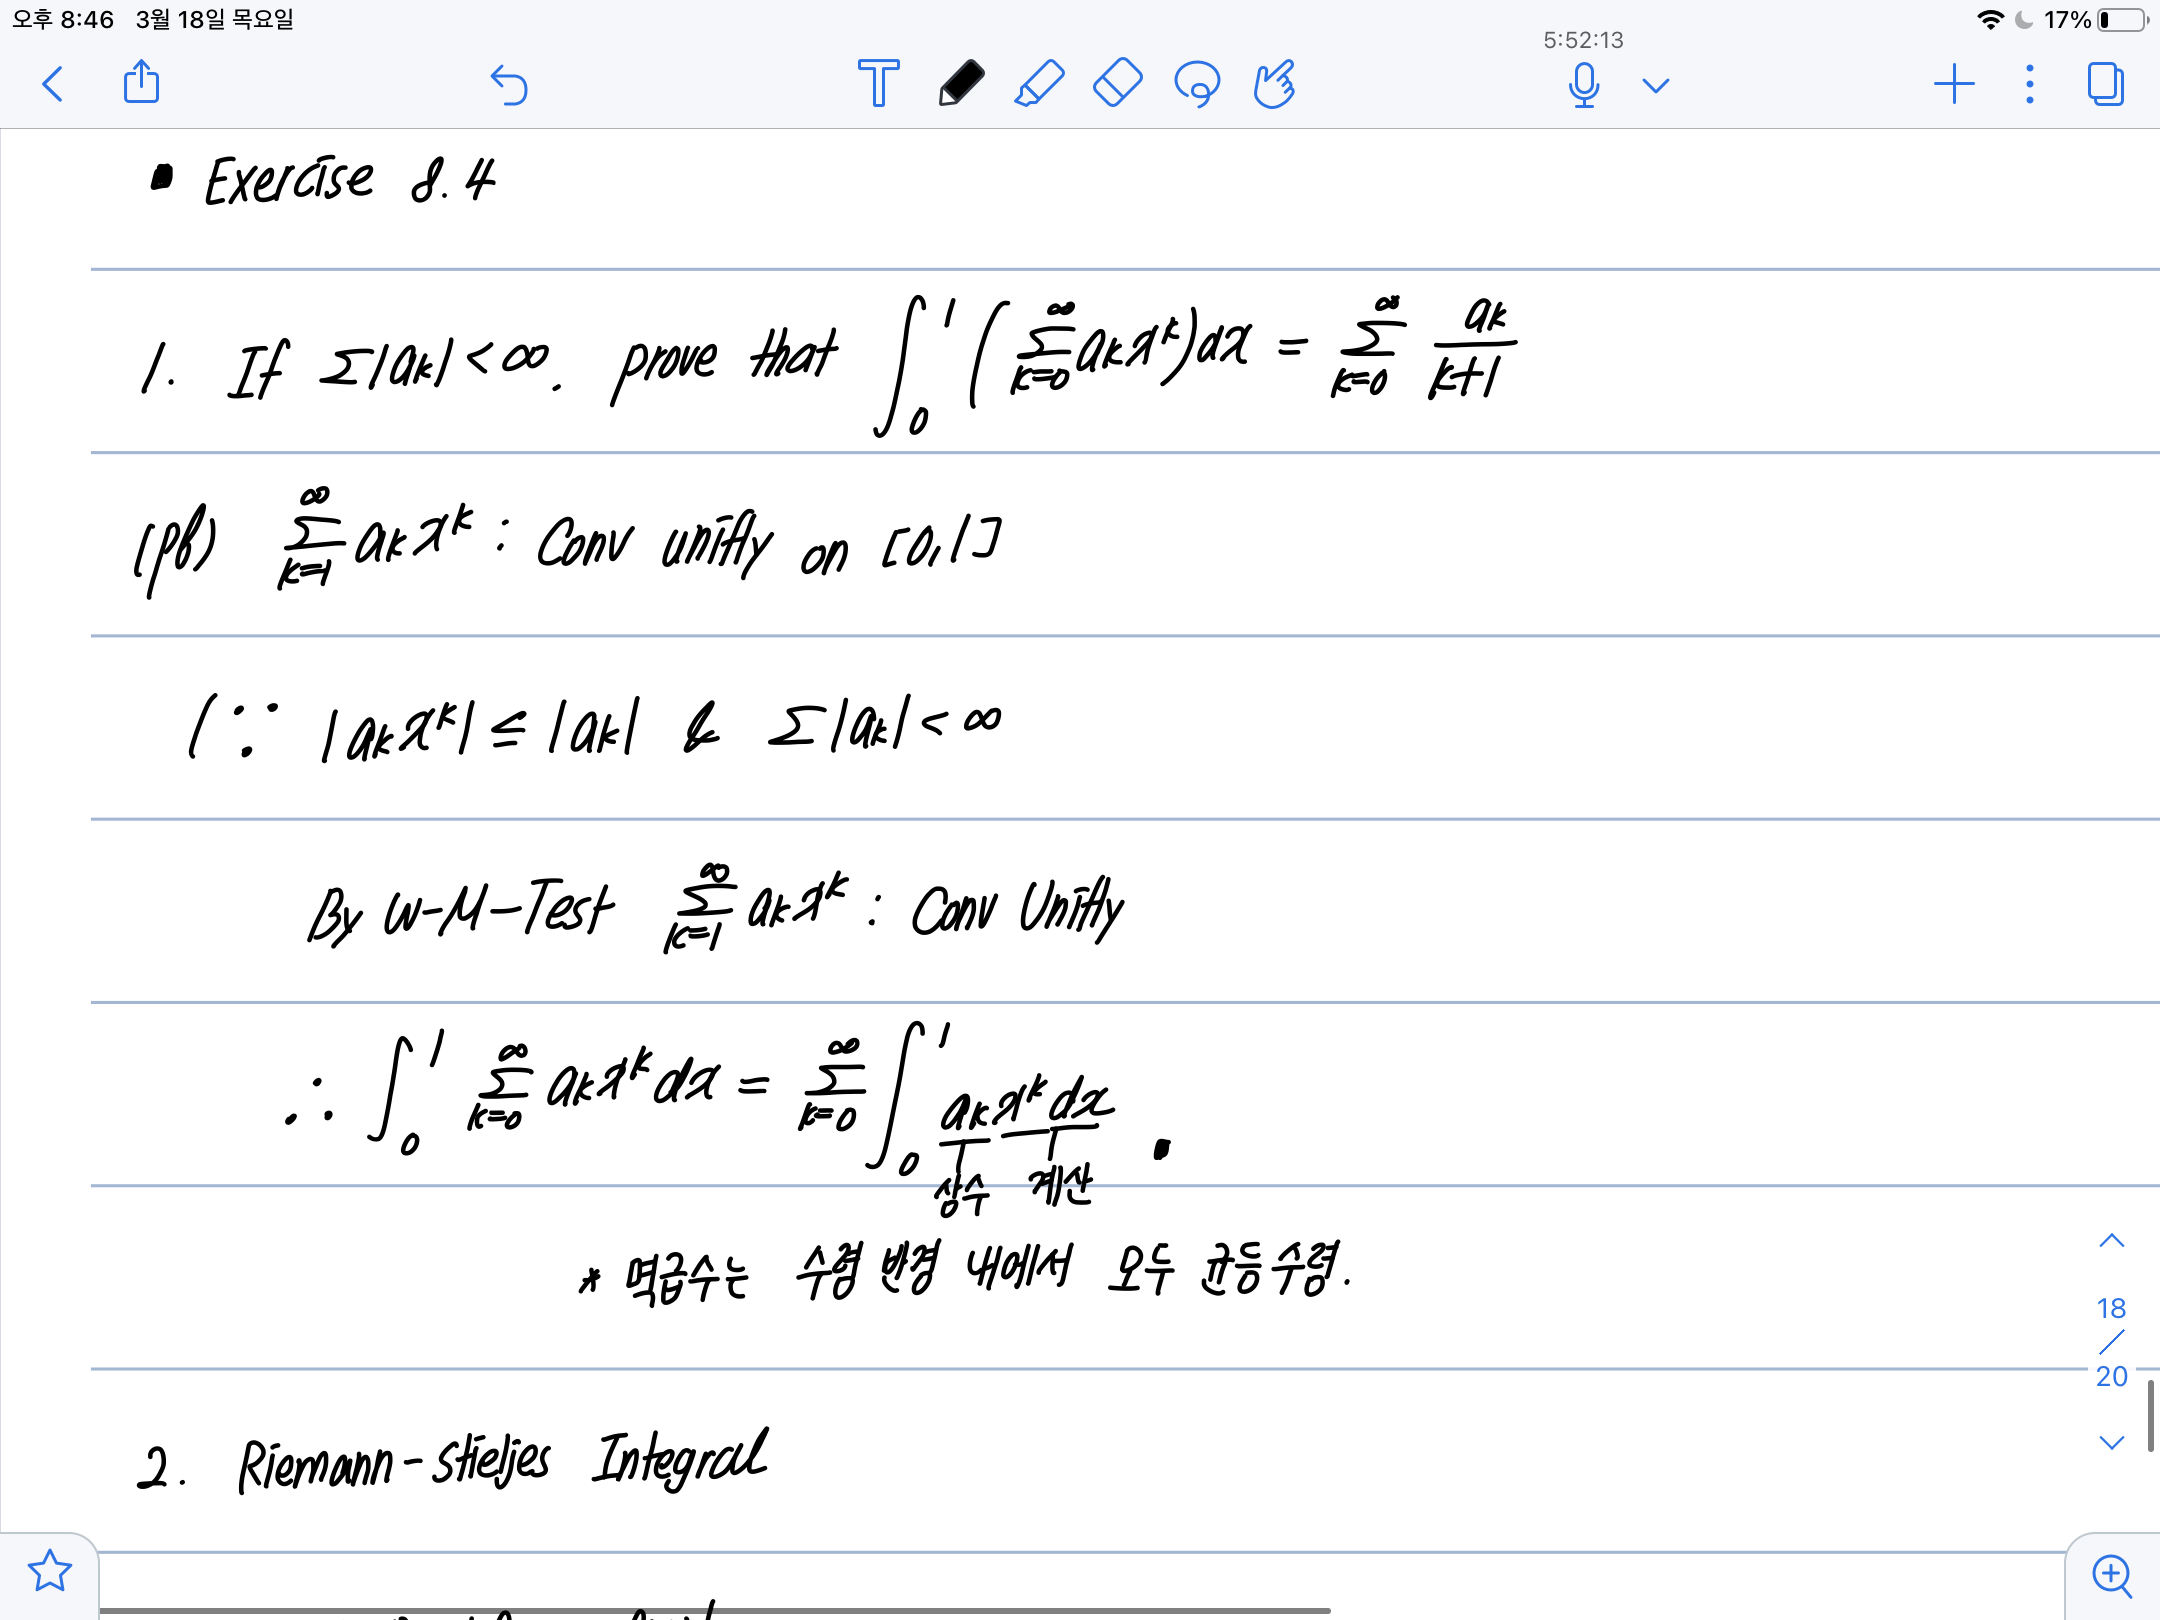 오후 8:46 3월 18일 목요일
17%
5:52:13
T
• Exercise 8.4
1. If Σ|ak| < ∞. prove that ∫₀¹ ( Σ_{k=0}^{∞} ak x^k ) dx = Σ_{k=0}^{∞} ak/(k+1)
(pf) Σ_{k=1}^{∞} ak x^k : Conv unifly on [0,1]
(∵ |ak x^k| ≤ |ak| & Σ|ak| < ∞
By W-M-Test Σ_{k=1}^{∞} ak x^k : Conv Unifly
∴ ∫₀¹ Σ_{k=0}^{∞} ak x^k dx = Σ_{k=0}^{∞} ∫₀¹ ak x^k dx
상수 계산
* 멱급수는 수렴 반경 내에서 모두 균등수렴.
18
/
20
2. Riemann-Stieljes Integral